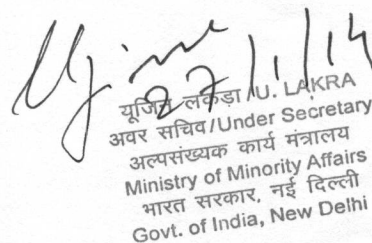 27/1/14
यूजिन लकड़ा/U. LAKRA
अवर सचिव/Under Secretary
अल्पसंख्यक कार्य मंत्रालय
Ministry of Minority Affairs
भारत सरकार, नई दिल्ली
Govt. of India, New Delhi